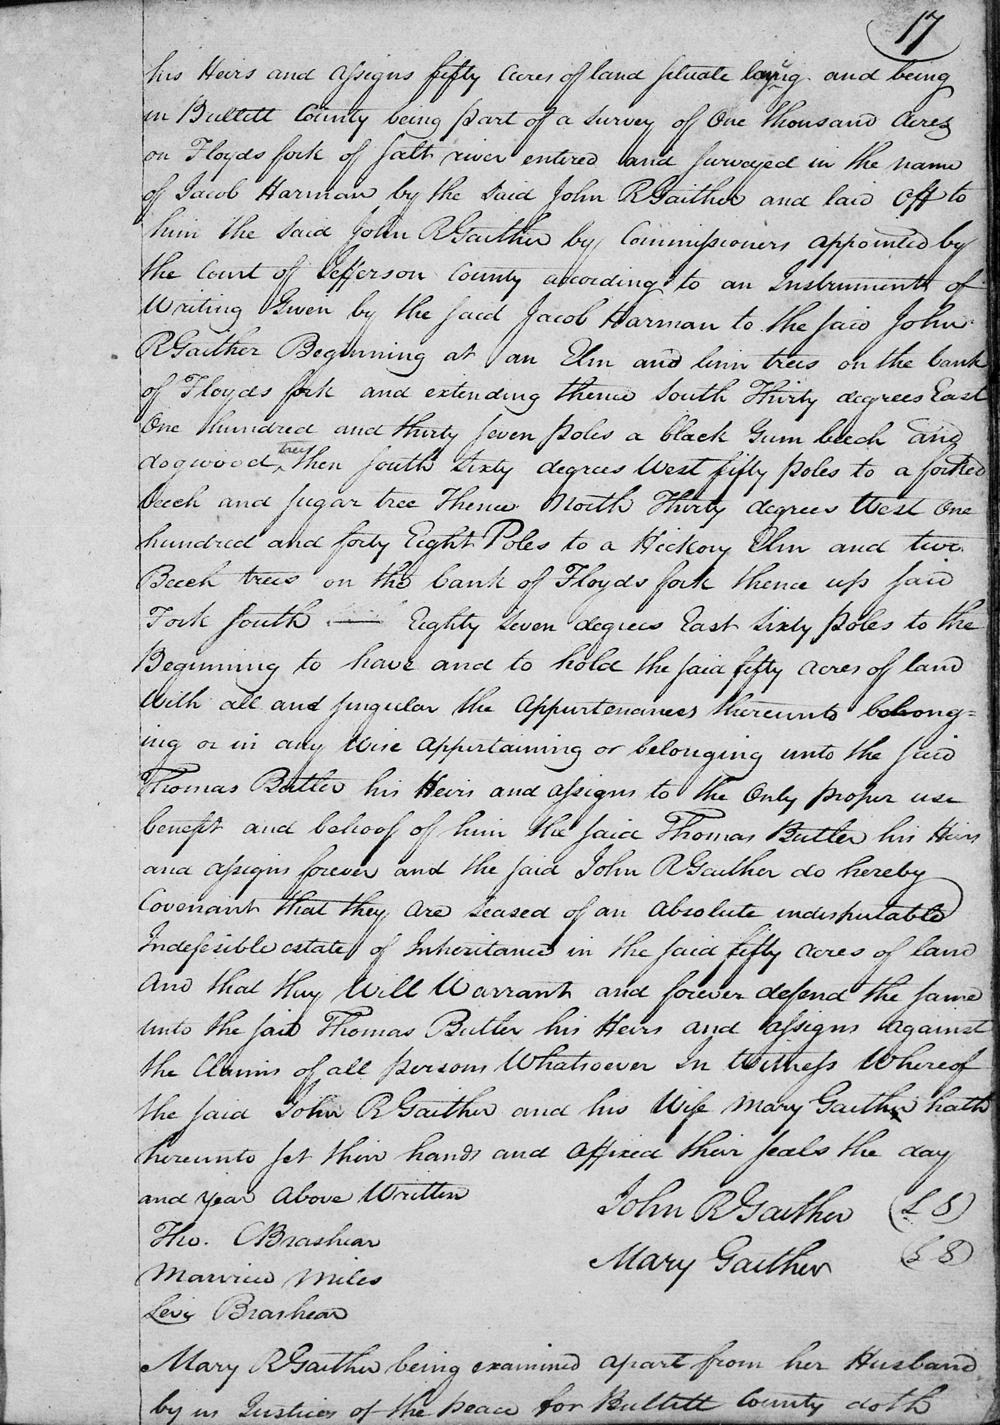 17
his Heirs and assigns fifty acres of land situate laying and being
in Bullitt County being part of a survey of One thousand Acres
on Floyds fork of salt river entered and surveyed in the name
of Jacob Harman by the said John R Gaither and laid off to
him the said John R Gaither by Commissioners appointed by
the Court of Jefferson County according to an Instrument of
Writing Given by the said Jacob Harman to the said John
R Gaither Beginning at an Elm and linn trees on the bank
of Floyds fork and extending thence South Thirty degrees East
One hundred and thirty seven poles a black Gum beech and
dogwood trees then South Sixty degrees West fifty poles to a forked
beech and sugar tree Thence North Thirty degrees West One
hundred and forty Eight Poles to a Hickory Elm and two
Beech trees on the bank of Floyds fork thence up said
Fork South Eighty Seven degrees East Sixty poles to the
Beginning to have and to hold the said fifty acres of land
With all and singular the Appurtenances thereunto belong=
ing or in any Wise Appurtaining or belonging unto the said
Thomas Butler his Heirs and assigns to the Only proper use
benefit and behoof of him the said Thomas Butler his Heirs
and assigns forever and the said John R Gaither do hereby
Covenant that they are seased of an Absolute indisputable
Indefesible estate of Inheritance in the said fifty acres of land
And that they Will Warrant and forever defend the same
unto the said Thomas Butler his Heirs and assigns against
the Claims of all persons Whatsoever In Witness Whereof
the said John R Gaither and his Wife Mary Gaither hath
hereunto set their hands and affixed their seals the day
and year Above Written John R Gaither (L S)
Tho. C Brashear Mary Gaither (L S)
Marvied Miles
Levy Brashear
Mary R Gaither being examined apart from her Husband
by us Justices of the peace for Bullitt County doth